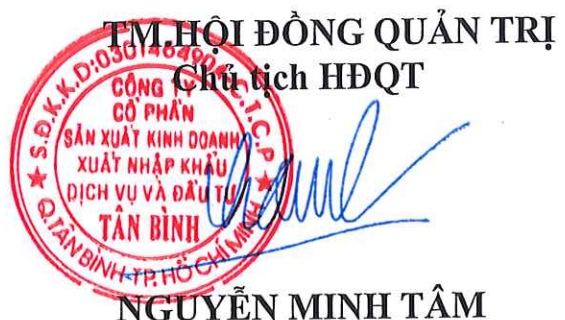 TM.HỘI ĐỒNG QUẢN TRỊ
Chủ tịch HĐQT
CÔNG TY
CỔ PHẦN
SẢN XUẤT KINH DOANH
XUẤT NHẬP KHẨU
DỊCH VỤ VÀ ĐẦU TƯ
TÂN BÌNH
Q.TÂN BÌNH-TP.HỒ CHÍ MINH
NGUYỄN MINH TÂM